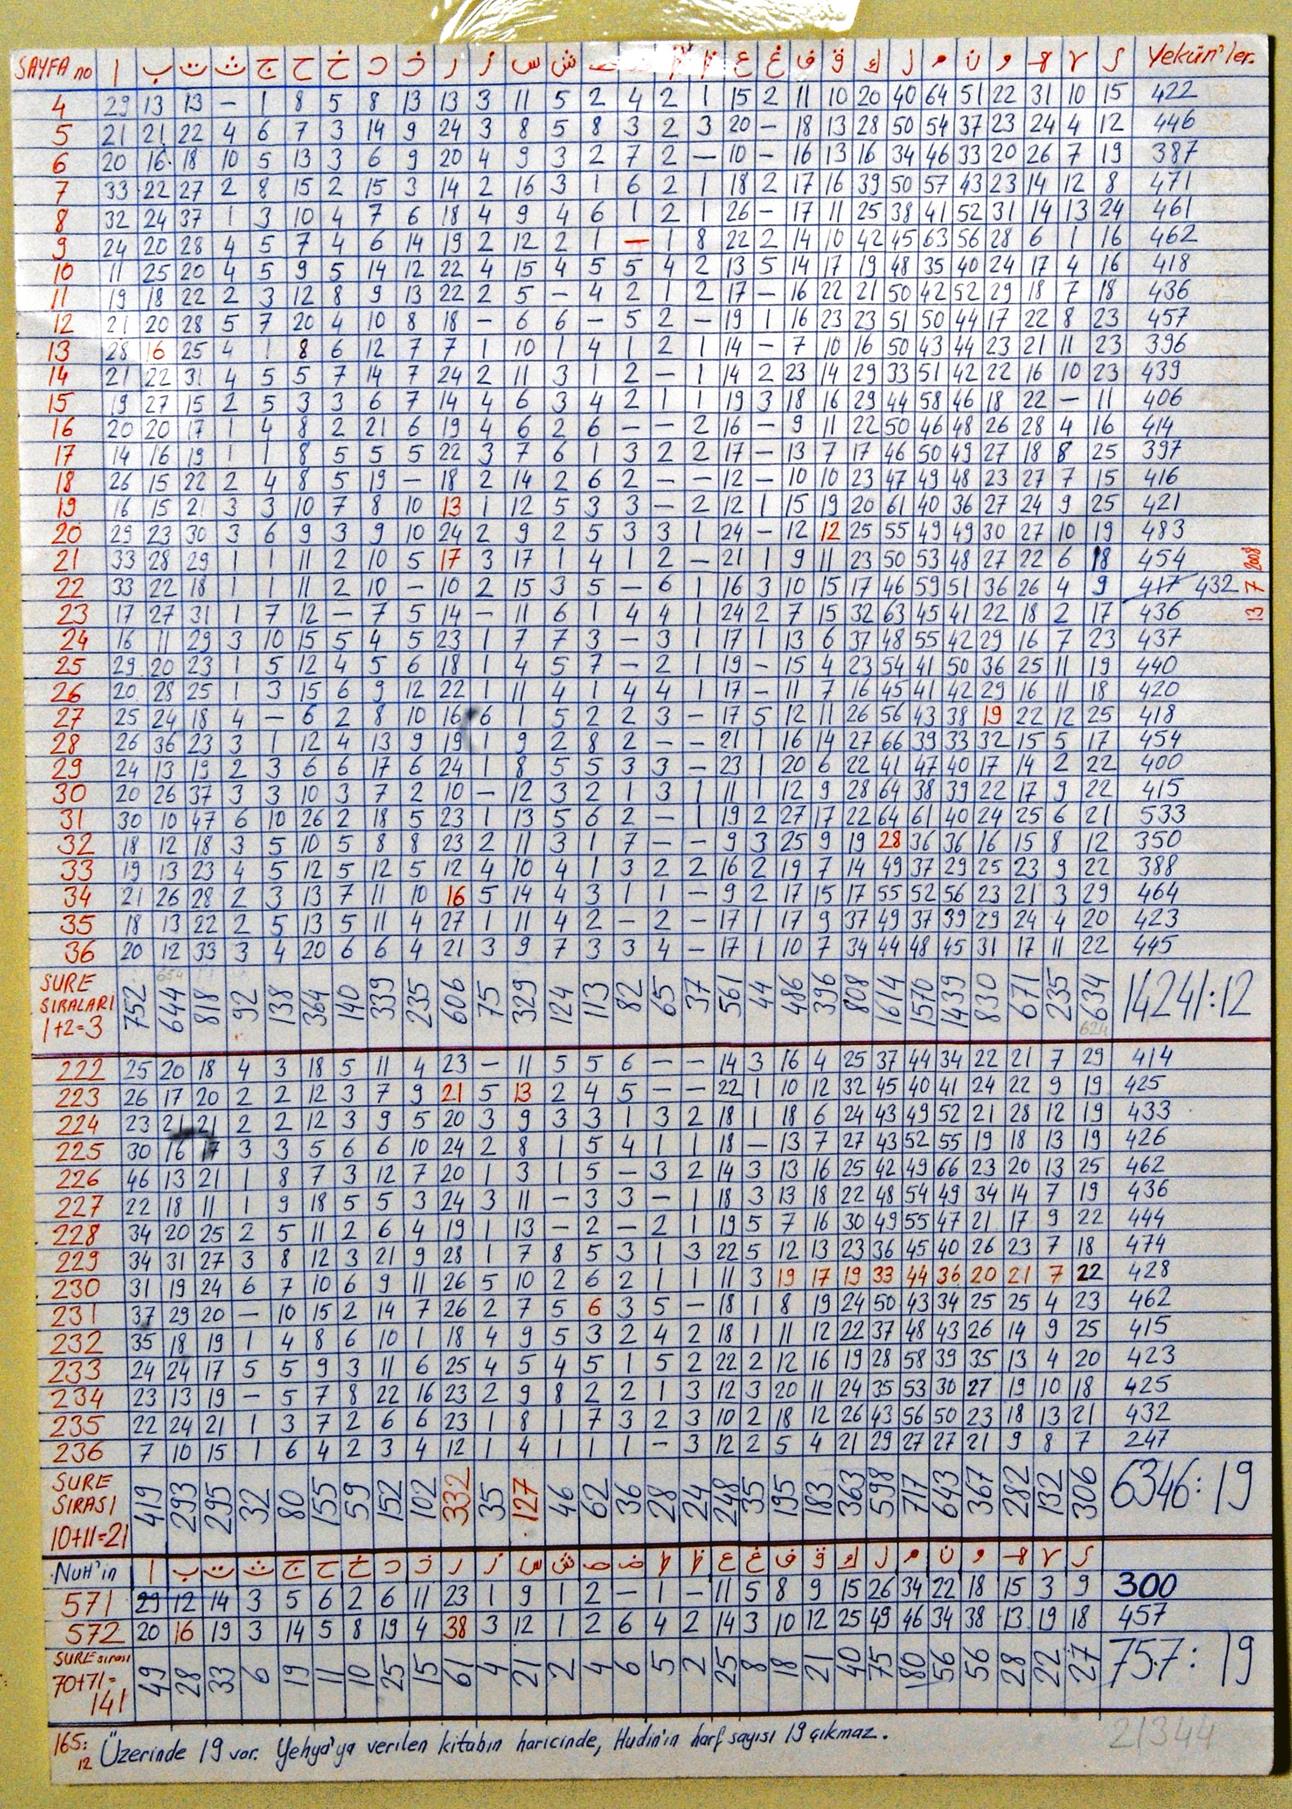 SAYFA no ا ب ت ث ج ح خ د ذ ر ز س ش ص ض ط ظ ع غ ف ق ك ل م ن و ه لا ي Yekün'ler.
4 29 13 13 - 1 8 5 8 13 13 3 11 5 2 4 2 1 15 2 11 10 20 40 64 51 22 31 10 15 422
5 21 21 22 4 6 7 3 14 9 24 3 8 5 8 3 2 3 20 - 18 13 28 50 54 37 23 24 4 12 446
6 20 16 18 10 5 13 3 6 9 20 4 9 3 2 7 2 - 10 - 16 13 16 34 46 33 20 26 7 19 387
7 33 22 27 2 8 15 2 15 3 14 2 16 3 1 6 2 1 18 2 17 16 39 50 57 43 23 14 12 8 471
8 32 24 37 1 3 10 4 7 6 18 4 9 4 6 1 2 1 26 - 17 11 25 38 41 52 31 14 13 24 461
9 24 20 28 4 5 7 4 6 14 19 2 12 2 1 - 1 8 22 2 14 10 42 45 63 56 28 6 1 16 462
10 11 25 20 4 5 9 5 14 12 22 4 15 4 5 5 4 2 13 5 14 17 19 48 35 40 24 17 4 16 418
11 19 18 22 2 3 12 8 9 13 22 2 5 - 4 2 1 2 17 - 16 22 21 50 42 52 29 18 7 18 436
12 21 20 28 5 7 20 4 10 8 18 - 6 6 - 5 2 - 19 1 16 23 23 51 50 44 17 22 8 23 457
13 28 16 25 4 1 8 6 12 7 7 1 10 1 4 1 2 1 14 - 7 10 16 50 43 44 23 21 11 23 396
14 21 22 31 4 5 5 7 14 7 24 2 11 3 1 2 - 1 14 2 23 14 29 33 51 42 22 16 10 23 439
15 19 27 15 2 5 3 3 6 7 14 4 6 3 4 2 1 1 19 3 18 16 29 44 58 46 18 22 - 11 406
16 20 20 17 1 4 8 2 21 6 19 4 6 2 6 - - 2 16 - 9 11 22 50 46 48 26 28 4 16 414
17 14 16 19 1 1 8 5 5 5 22 3 7 6 1 3 2 2 17 - 13 7 17 46 50 49 27 18 8 25 397
18 26 15 22 2 4 8 5 19 - 18 2 14 2 6 2 - - 12 - 10 10 23 47 49 48 23 27 7 15 416
19 16 15 21 3 3 10 7 8 10 13 1 12 5 3 3 - 2 12 1 15 19 20 61 40 36 27 24 9 25 421
20 29 23 30 3 6 9 3 9 10 24 2 9 2 5 3 3 1 24 - 12 12 25 55 49 49 30 27 10 19 483
21 33 28 29 1 1 11 2 10 5 17 3 17 1 4 1 2 - 21 1 9 11 23 50 53 48 27 22 6 18 454
22 33 22 18 1 1 11 2 10 - 10 2 15 3 5 - 6 1 16 3 10 15 17 46 59 51 36 26 4 9 417 432
13 7 2008
23 17 27 31 1 7 12 - 7 5 14 - 11 6 1 4 4 1 24 2 7 15 32 63 45 41 22 18 2 17 436
24 16 11 29 3 10 15 5 4 5 23 1 7 7 3 - 3 1 17 1 13 6 37 48 55 42 29 16 7 23 437
25 29 20 23 1 5 12 4 5 6 18 1 4 5 7 - 2 1 19 - 15 4 23 54 41 50 36 25 11 19 440
26 20 28 25 1 3 15 6 9 12 22 1 11 4 1 4 4 1 17 - 11 7 16 45 41 42 29 16 11 18 420
27 25 24 18 4 - 6 2 8 10 16 6 1 5 2 2 3 - 17 5 12 11 26 56 43 38 19 22 12 25 418
28 26 36 23 3 1 12 4 13 9 19 1 9 2 8 2 - - 21 1 16 14 27 66 39 33 32 15 5 17 454
29 24 13 19 2 3 6 6 17 6 24 1 8 5 5 3 3 - 23 1 20 6 22 41 47 40 17 14 2 22 400
30 20 26 37 3 3 10 3 7 2 10 - 12 3 2 1 3 1 11 1 12 9 28 64 38 39 22 17 9 22 415
31 30 10 47 6 10 26 2 18 5 23 1 13 5 6 2 - 1 19 2 27 17 22 64 61 40 24 25 6 21 533
32 18 12 18 3 5 10 5 8 8 23 2 11 3 1 7 - - 9 3 25 9 19 28 36 36 16 15 8 12 350
33 19 13 23 4 5 12 5 12 5 12 4 10 4 1 3 2 2 16 2 19 7 14 49 37 29 25 23 9 22 388
34 21 26 28 2 3 13 7 11 10 16 5 14 4 3 1 1 - 9 2 17 15 17 55 52 56 23 21 3 29 464
35 18 13 22 2 5 13 5 11 4 27 1 11 4 2 - 2 - 17 1 17 9 37 49 37 39 29 24 4 20 423
36 20 12 33 3 4 20 6 6 4 21 3 9 7 3 3 4 - 17 1 10 7 34 44 48 45 31 17 11 22 445
SURE SIRALARI 1+2=3 752 644 818 92 138 364 140 339 235 606 75 329 124 113 82 65 37 561 44 486 396 808 1614 1570 1439 830 671 235 634 14241:12
222 25 20 18 4 3 18 5 11 4 23 - 11 5 5 6 - - 14 3 16 4 25 37 44 34 22 21 7 29 414
223 26 17 20 2 2 12 3 7 9 21 5 13 2 4 5 - - 22 1 10 12 32 45 40 41 24 22 9 19 425
224 23 21 21 2 2 12 3 9 5 20 3 9 3 3 1 3 2 18 1 18 6 24 43 49 52 21 28 12 19 433
225 30 16 17 3 3 5 6 6 10 24 2 8 1 5 4 1 1 18 - 13 7 27 43 52 55 19 18 13 19 426
226 46 13 21 1 8 7 3 12 7 20 1 3 1 5 - 3 2 14 3 13 16 25 42 49 66 23 20 13 25 462
227 22 18 11 1 9 18 5 5 3 24 3 11 - 3 3 - 1 18 3 13 18 22 48 54 49 34 14 7 19 436
228 34 20 25 2 5 11 2 6 4 19 1 13 - 2 - 2 1 19 5 7 16 30 49 55 47 21 17 9 22 444
229 34 31 27 3 8 12 3 21 9 28 1 7 8 5 3 1 3 22 5 12 13 23 36 45 40 26 23 7 18 474
230 31 19 24 6 7 10 6 9 11 26 5 10 2 6 2 1 1 11 3 19 17 19 33 44 36 20 21 7 22 428
231 37 29 20 - 10 15 2 14 7 26 2 7 5 6 3 5 - 18 1 8 19 24 50 43 34 25 25 4 23 462
232 35 18 19 1 4 8 6 10 1 18 4 9 5 3 2 4 2 18 1 11 12 22 37 48 43 26 14 9 25 415
233 24 24 17 5 5 9 3 11 6 25 4 5 4 5 1 5 2 22 2 12 16 19 28 58 39 35 13 4 20 423
234 23 13 19 - 5 7 8 22 16 23 2 9 8 2 2 1 3 12 3 20 11 24 35 53 30 27 19 10 18 425
235 22 24 21 1 3 7 2 6 6 23 1 8 1 7 3 2 3 10 2 18 12 26 43 56 50 23 18 13 21 432
236 7 10 15 1 6 4 2 3 4 12 1 4 1 1 1 - 3 12 2 5 4 21 29 27 27 21 9 8 7 247
SURE SIRASI 10+11=21 419 293 295 32 80 155 59 152 102 332 35 127 46 62 36 28 24 248 35 195 183 363 598 717 643 367 282 132 306 6346:19
NUH'in ا ب ت ث ج ح خ د ذ ر ز س ش ص ض ط ظ ع غ ف ق ك ل م ن و ه لا ي
571 29 12 14 3 5 6 2 6 11 23 1 9 1 2 - 1 - 11 5 8 9 15 26 34 22 18 15 3 9 300
572 20 16 19 3 14 5 8 19 4 38 3 12 1 2 6 4 2 14 3 10 12 25 49 46 34 38 13 19 18 457
SURE sırası 70+71=141 49 28 33 6 19 11 10 25 15 61 4 21 2 4 6 5 2 25 8 18 21 40 75 80 56 56 28 22 27 757:19
165:12 Üzerinde 19 var. Yehya'ya verilen kitabın haricinde, Hudin'in harf sayısı 19 çıkmaz.
21344